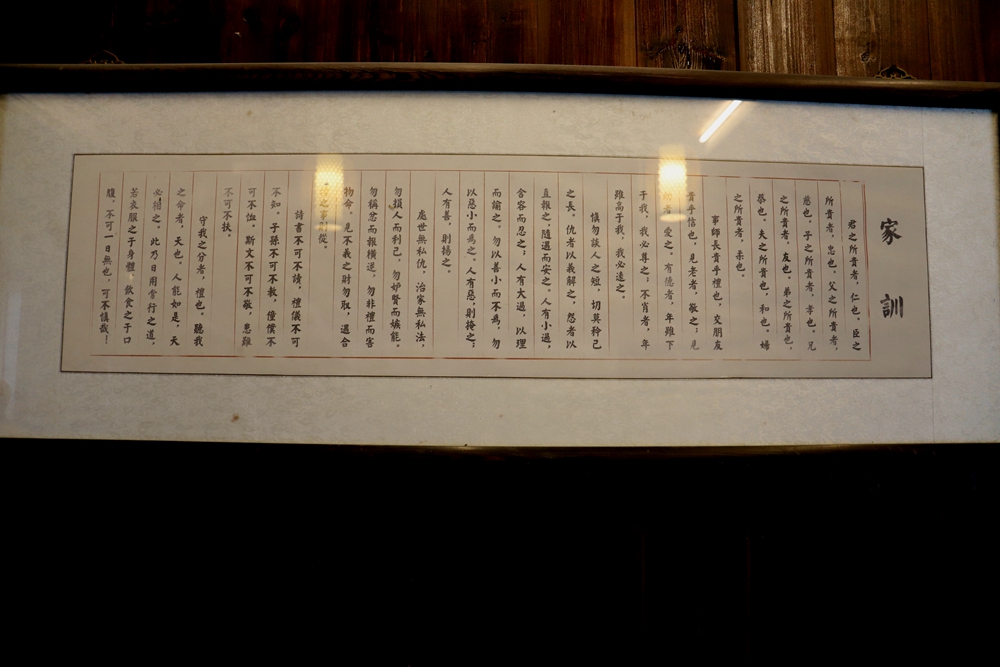 家訓
君之所貴者,仁也。臣之
所貴者,忠也。父之所貴者,
慈也。子之所貴者,孝也。兄
之所貴者,友也。弟之所貴也,
恭也。夫之所貴也,和也。婦
之所貴者,柔也。
事師長貴乎禮也,交朋友
貴乎信也。見老者,敬之;見
者,愛之。有德者,年雖下
于我,我必尊之;不肖者,年
雖高于我,我必遠之。
慎勿談人之短,切莫矜己
之長。仇者以義解之,怨者以
直報之,隨遇而安之。人有小過,
含容而忍之;人有大過,以理
而諭之。勿以善小而不為,勿
以惡小而為之。人有惡,則掩之;
人有善,則揚之。
處世無私仇,治家無私法。
勿損人而利己,勿妒賢而嫉能。
勿稱忿而報橫逆,勿非禮而害
物命。見不義之財勿取,遇合
之事則從。
詩書不可不讀,禮儀不可
不知。子孫不可不教,僮僕不
可不恤。斯文不可不敬,患難
不可不扶。
守我之分者,禮也。聽我
之命者,天也。人能如是,天
必相之。此乃日用常行之道,
若衣服之于身體,飲食之于口
腹,不可一日無也,可不慎哉!